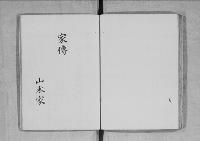 家傳
山本家